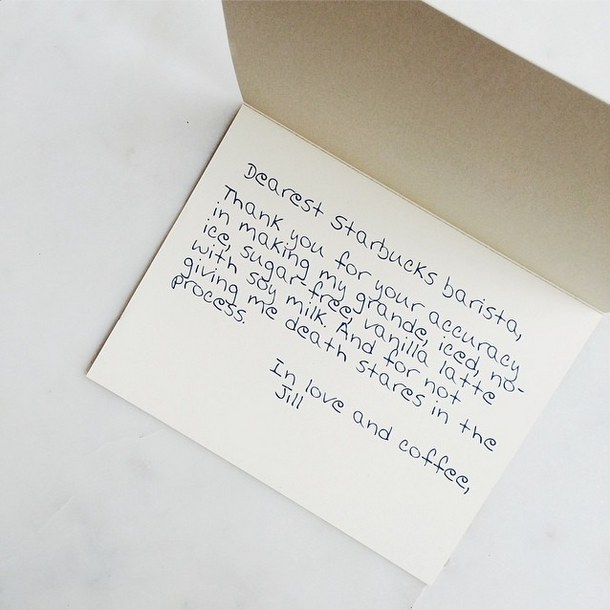 Dearest Starbucks barista,
Thank you for your accuracy
in making my grande, iced, no-
ice, sugar-free, vanilla latte
with soy milk. And for not
giving me death stares in the
process.
In love and coffee,
Jill